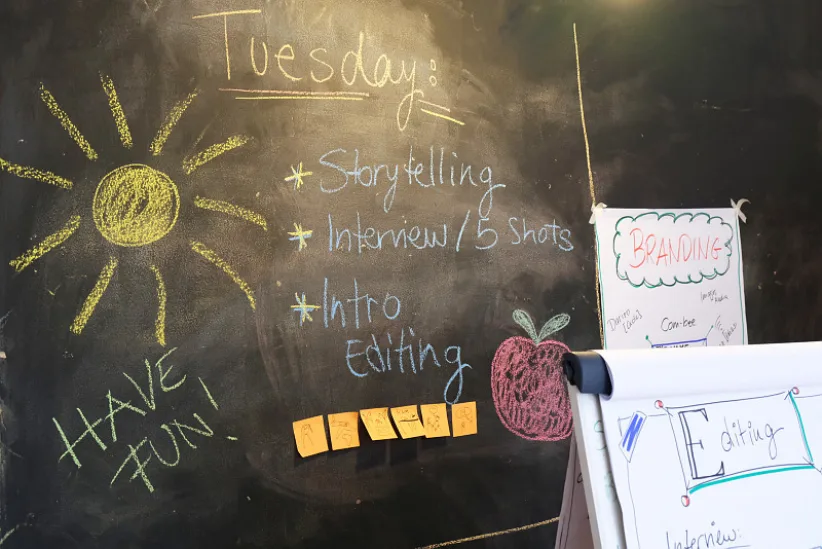 Tuesday:
* Storytelling
* Interview / 5 Shots
* Intro
Editing
HAVE
FUN!
BRANDING
Com-bee
Editing
Interview: